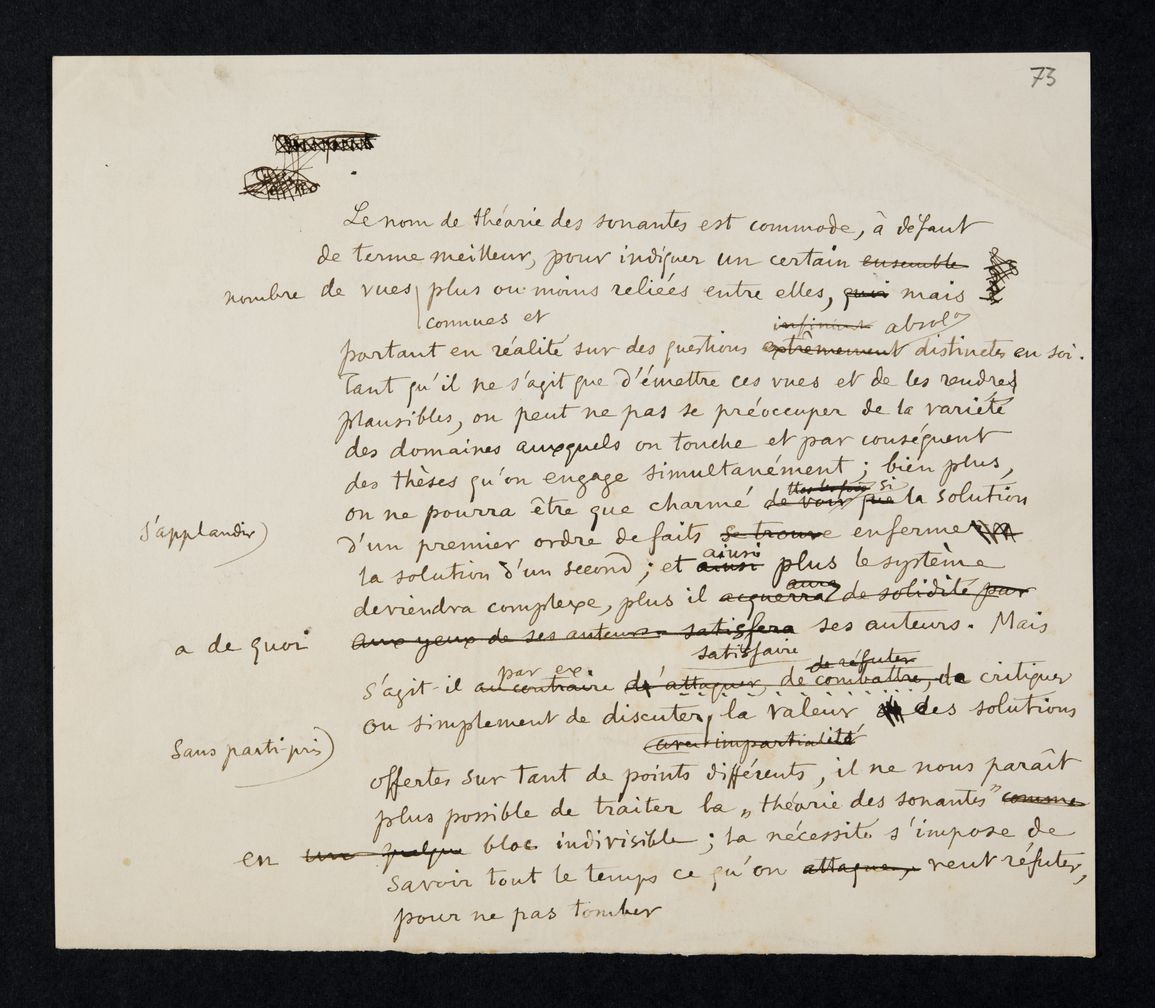 73
Le nom de théorie des sonantes est commode, à défaut
de terme meilleur, pour indiquer un certain ensemble
nombre de vues plus ou moins reliées entre elles, qui mais
connues et
infiniment absolt
portant en réalité sur des questions extrêmement distinctes en soi.
Tant qu'il ne s'agit que d'émettre ces vues et de les rendre
plausibles, on peut ne pas se préoccuper de la variété
des domaines auxquels on touche et par conséquent
des thèses qu'on engage simultanément ; bien plus,
si
on ne pourra être que charmé de voir que la solution
s'applaudir
d'un premier ordre de faits se trouve enferme
ainsi
la solution d'un second ; et ainsi plus le système
aura
deviendra complexe, plus il acquerra de solidité par
a de quoi aux yeux de ses auteurs. satisfera ses auteurs. Mais
satisfaire
par ex. de réfuter
s'agit-il au contraire d'attaquer, de combattre, de critiquer
ou simplement de discuter, la valeur des solutions
sans parti-pris avec impartialité
offertes sur tant de points différents, il ne nous paraît
plus possible de traiter la „théorie des sonantes" comme
en un quelque bloc indivisible ; la nécessité s'impose de
savoir tout le temps ce qu'on attaque, veut réfuter,
pour ne pas tomber